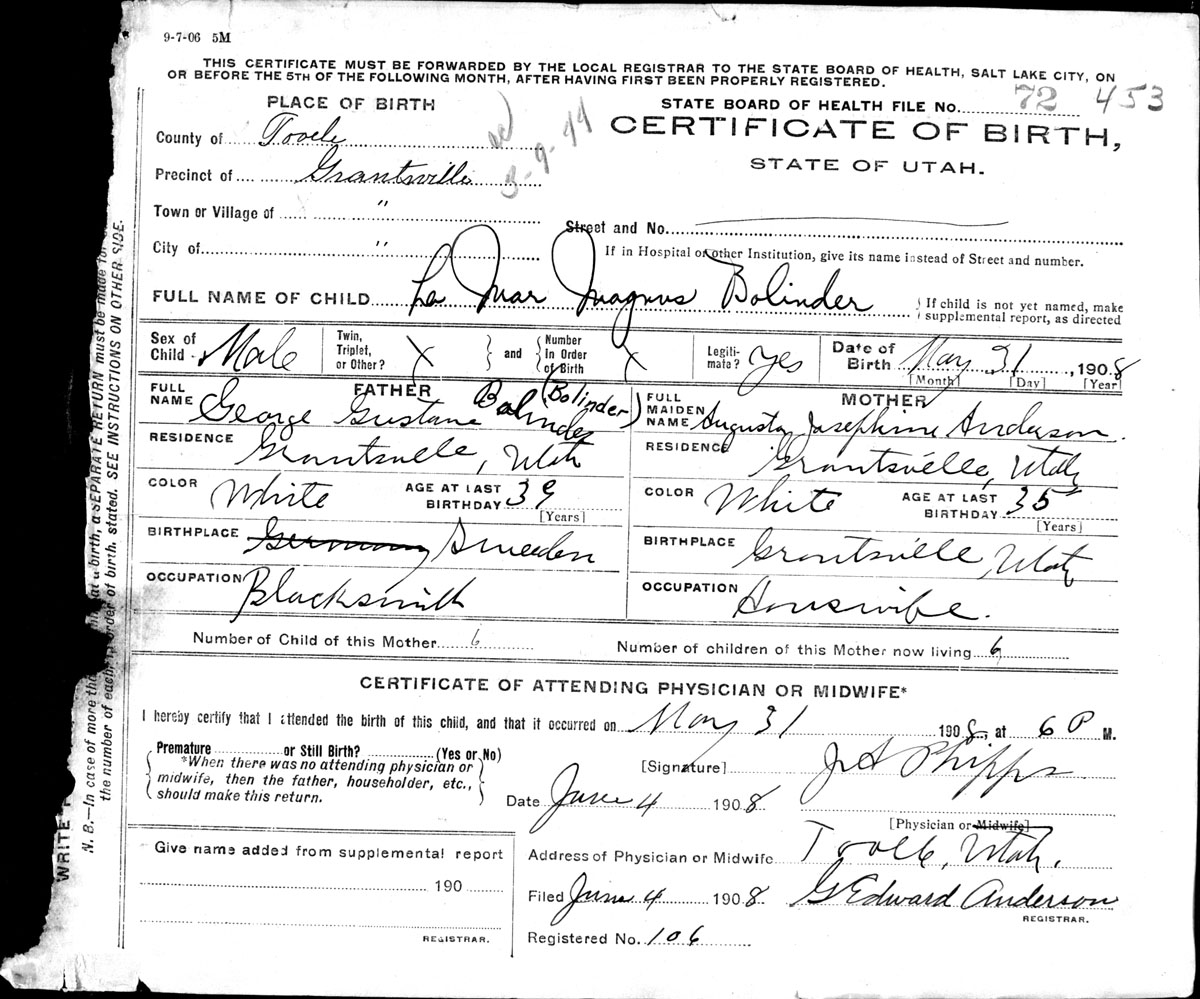 9-7-06 5M
THIS CERTIFICATE MUST BE FORWARDED BY THE LOCAL REGISTRAR TO THE STATE BOARD OF HEALTH, SALT LAKE CITY, ON
OR BEFORE THE 5TH OF THE FOLLOWING MONTH, AFTER HAVING FIRST BEEN PROPERLY REGISTERED.
PLACE OF BIRTH
STATE BOARD OF HEALTH FILE No. 72 453
County of Tooele
3-9-44
CERTIFICATE OF BIRTH,
STATE OF UTAH.
Precinct of Grantsville
Town or Village of "
Street and No.
City of "
If in Hospital or other Institution, give its name instead of Street and number.
FULL NAME OF CHILD La Mar Magnus Bolinder
{ If child is not yet named, make
supplemental report, as directed
Sex of Child - Male
Twin, Triplet, or Other? X } and { Number In Order of Birth X
Legiti- mate? Yes
Date of Birth May 31, 1908
[Month] [Day] [Year]
FATHER
FULL NAME George Gustave Bolinder (Bolinder)
RESIDENCE Grantsville, Utah
COLOR White
AGE AT LAST BIRTHDAY 39
[Years]
BIRTHPLACE Germany Sweeden
OCCUPATION Blacksmith
MOTHER
FULL MAIDEN NAME Augusta Josephine Anderson.
RESIDENCE Grantsville, Utah
COLOR White
AGE AT LAST BIRTHDAY 35
[Years]
BIRTHPLACE Grantsville, Utah
OCCUPATION Houswife.
Number of Child of this Mother 6
Number of children of this Mother now living 6
CERTIFICATE OF ATTENDING PHYSICIAN OR MIDWIFE*
I hereby certify that I attended the birth of this child, and that it occurred on May 31 1908, at 6 P M.
Premature or Still Birth? (Yes or No)
*When there was no attending physician or
midwife, then the father, householder, etc.,
should make this return.
[Signature] J A Phipps
Date June 4 1908
[Physician or Midwife]
Address of Physician or Midwife Tooele, Utah.
Filed June 4 1908. G Edward Anderson
REGISTRAR.
Registered No. 106
Give name added from supplemental report
190
REGISTRAR.
WRITE
N. B.—In case of more tha at a birth, a SEPARATE RETURN must be made for
the number of each order of birth, stated. SEE INSTRUCTIONS ON OTHER SIDE.